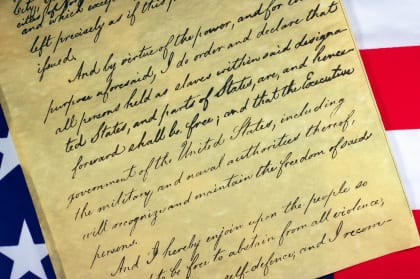 city, of
and which excep
left precisely as if this p
issued.
And by virtue of the power, and for
purpose aforesaid, I do order and declare that
all persons held as slaves within said designa-
ted States, and parts of States, are, and hence-
forward shall be free; and that the Executive
government of the United States, including
the military and naval authorities thereof,
will recognize and maintain the freedom of said
persons.
And I hereby enjoin upon the people so
to be free to abstain from all violence,
self-defence; and I recom-